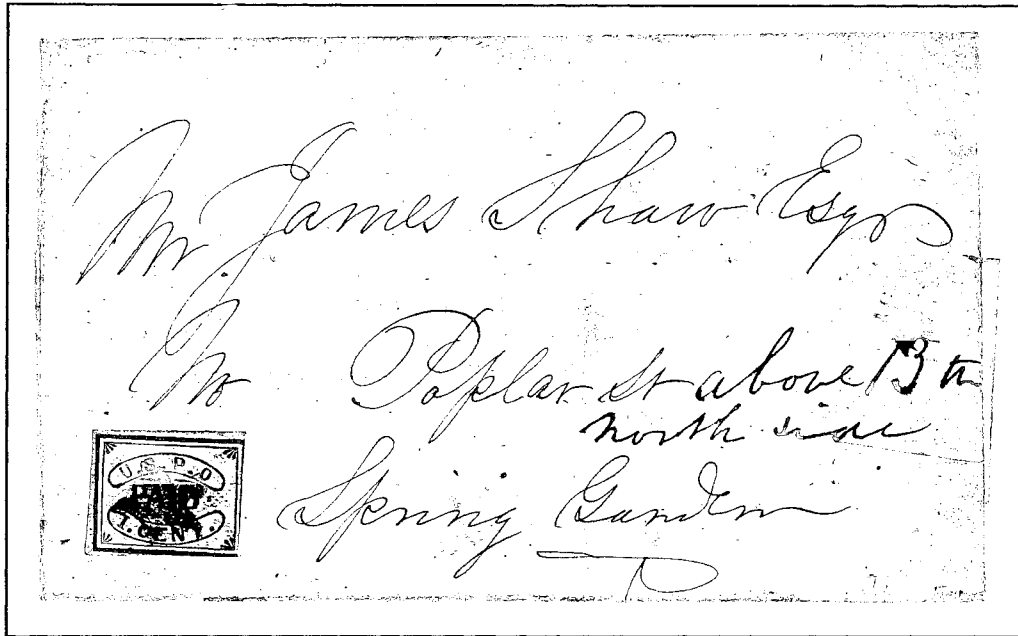 Mr James Shaw Esqr
No Poplar St above 13th
north side
Spring Garden
U.S.P.O
PAID
1.CENT.